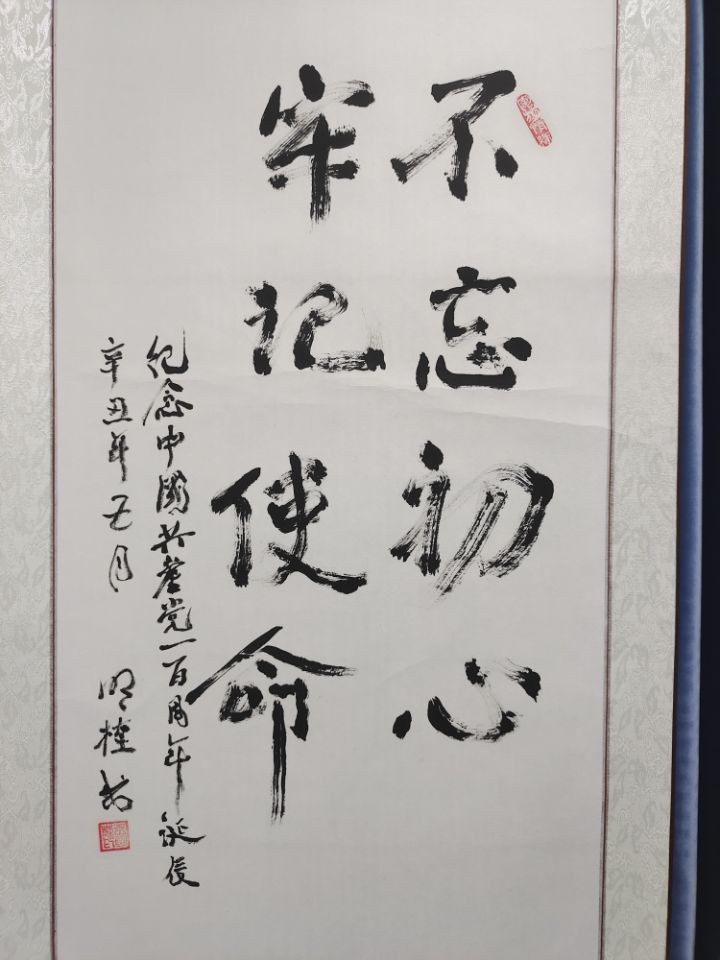 不忘初心
牢记使命
纪念中國共产党一百周年诞辰
辛丑年五月
明桂书